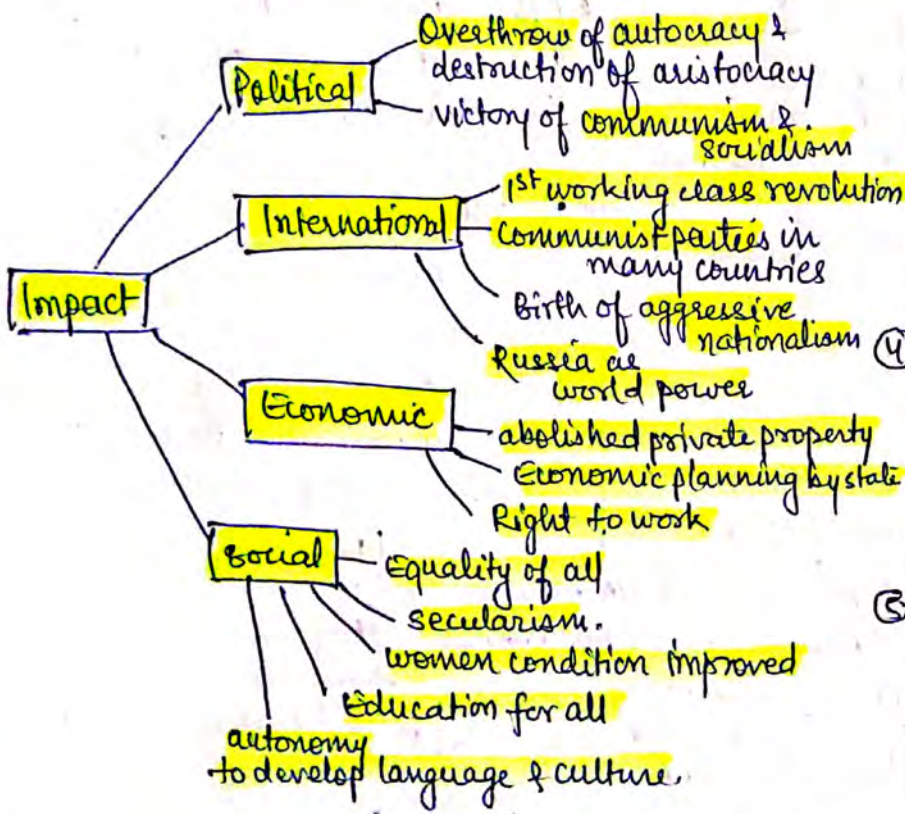 Impact
Political
Overthrow of autocracy &
destruction of aristocracy
victory of communism &
socialism
International
1st working class revolution
communist parties in
many countries
Birth of aggressive
nationalism
Russia as
world power
Economic
abolished private property
Economic planning by state
Right to work
social
Equality of all
secularism.
women condition improved
Education for all
autonomy
to develop language & culture.
4
5